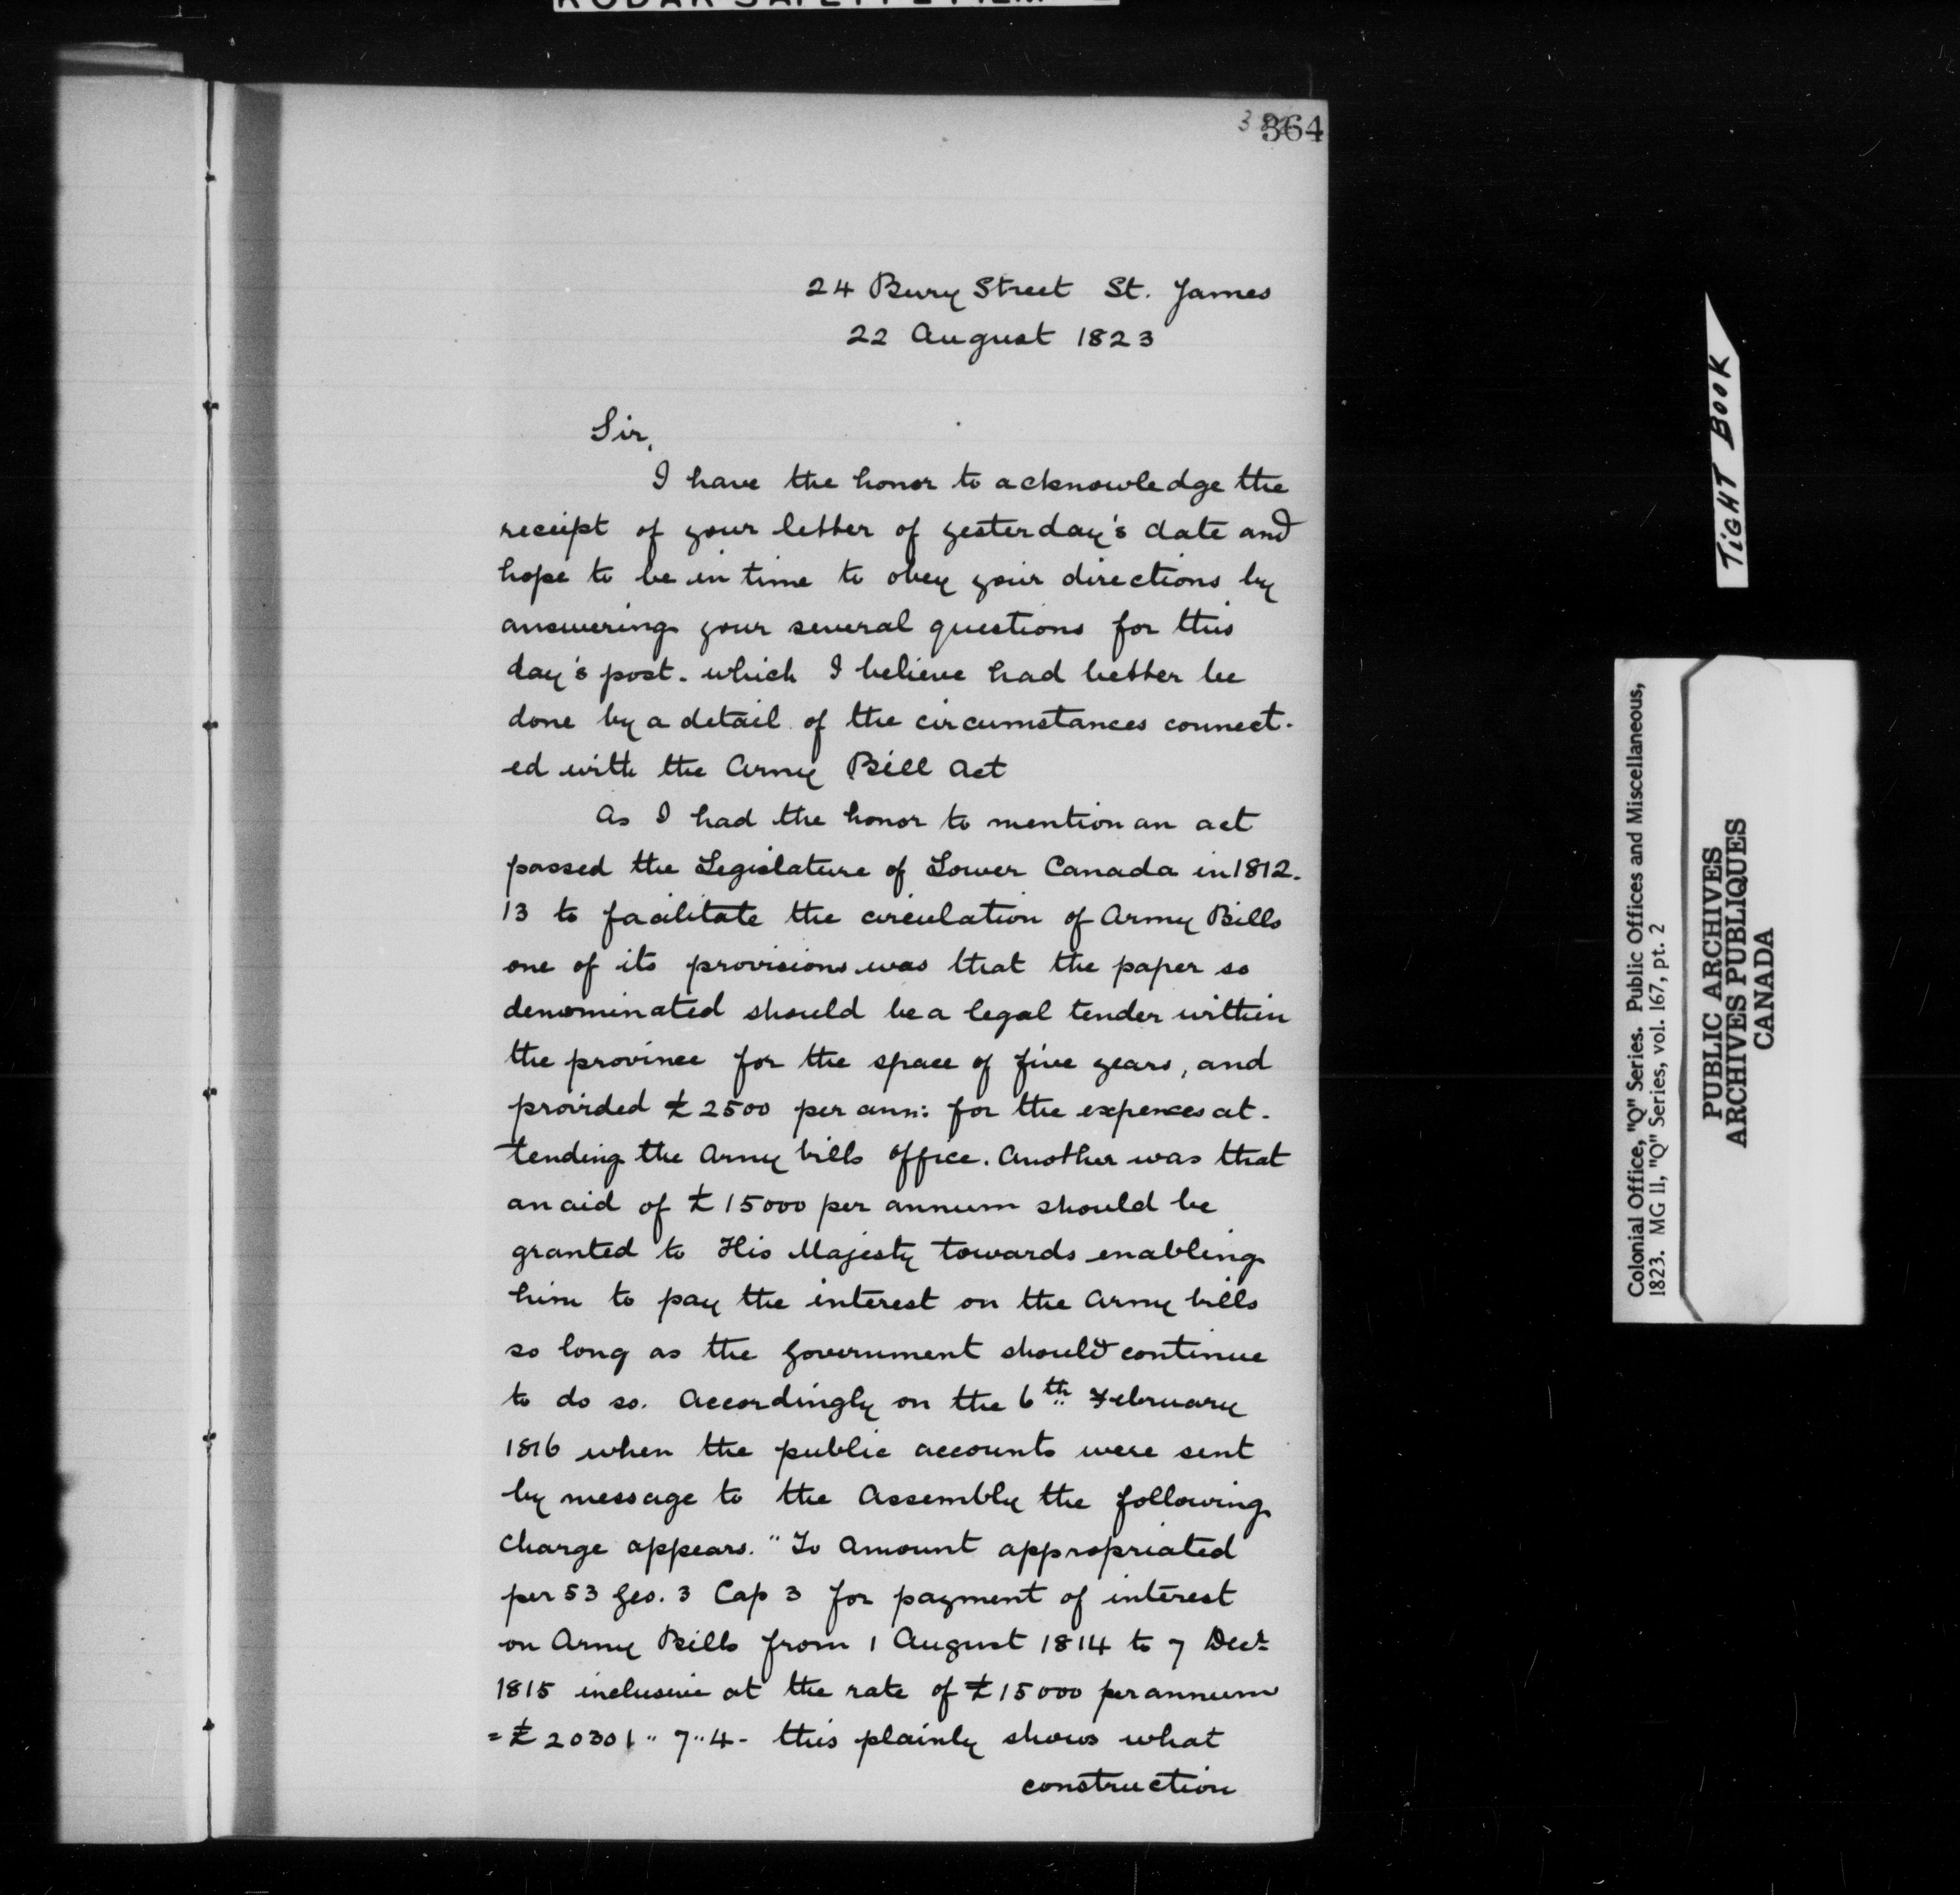 364
24 Bury Street St. James
22 August 1823
Sir,
I have the honor to acknowledge the
receipt of your letter of yesterday's date and
hope to be in time to obey your directions by
answering your several questions for this
day's post. which I believe had better be
done by a detail of the circumstances connect-
ed with the Army Bill Act
As I had the honor to mention an act
passed the Legislature of Lower Canada in 1812.
13 to facilitate the circulation of Army Bills
one of its provisions was that the paper so
denominated should be a legal tender within
the province for the space of five years, and
provided £2500 per ann: for the expences at-
tending the Army bills office. Another was that
an aid of £15000 per annum should be
granted to His Majesty towards enabling
him to pay the interest on the Army bills
so long as the Government should continue
to do so. Accordingly on the 6th February
1816 when the public accounts were sent
by message to the Assembly the following
charge appears. "To Amount appropriated
per 53 Geo. 3 Cap 3 for payment of interest
on Army Bills from 1 August 1814 to 7 Decr
1815 inclusive at the rate of £15000 per annum
= £20301 " 7 " 4 - this plainly shows what
construction
TIGHT BOOK
Colonial Office, "Q" Series. Public Offices and Miscellaneous,
1823. MG 11, "Q" Series, vol. 167, pt. 2
PUBLIC ARCHIVES
ARCHIVES PUBLIQUES
CANADA